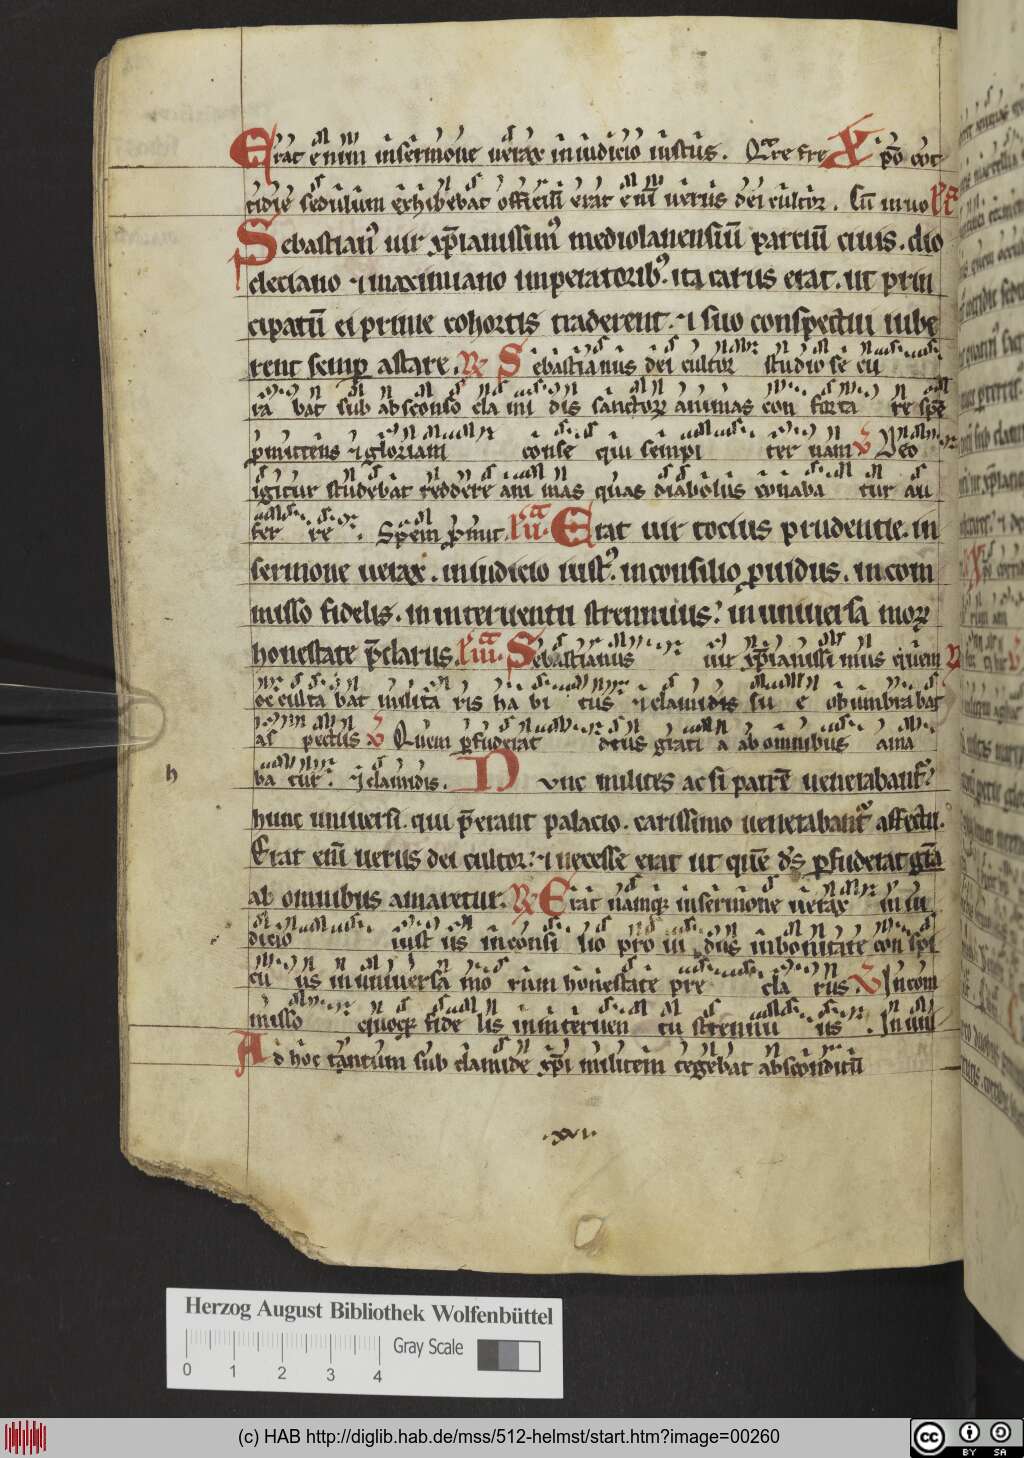 Erat enim in sermone uerax in iudicio iustus. Qͣre fre Xp̄o cot
tidie sedulum exhibebat officiū erat enī uerus dei cultor. Cū inuo
Sebastianꝰ uir xp̄ianissimꝰ mediolanensiū partiū ciuis. dio
cletiano ⁊ maximiano imperatoribꝰ. ita carus erat. ut prin
cipatū ei prime cohortis traderent. ⁊ suo conspectui iube
rent semp astare. R̸ Sebastianus dei cultor studiose cu
ra bat sub absconso cla mi dis sanctorꝝ animas con forta re spē
ꝓmittens ⁊ gloriam conse qui sempi ter nam V̸ Deo
igitur studebat reddere ani mas quas diabolus conaba tur au
fer re. Spem ꝓmit. Erat uir tocius prudentie. in
sermone uerax. in iudicio iustꝰ. in consilio ꝓuidus. in com
misso fidelis. in interuentu strennuus. in uniuersa morꝝ
honestate p̄clarus. Sebastianus uir xp̄ianissi mus quem
oc culta bat milita ris ha bi tus ⁊ clamidis su e obumbrabat
as pectus V̸ Quem ꝑfuderat deus grati a ab omnibus ama
ba tur. ⁊ clamidis. Nunc milites ac si patrē uenerabant.
hunc uniuersi. qui p̄erant palacio. carissimo uenerabantꝰ affectu.
Erat enī uerus dei cultor. ⁊ necesse erat ut quē ds̄ ꝑfuderat grā
ab omnibus amaretur. R̸ Erat namqꝫ in sermone uerax in iu
dicio iust us in consi lio pro ui dus in bonitate con spi
cu us in uniuersa mo rum honestate pre cla rus. V̸ In com
misso quoqꝫ fide lis in interuen tu strennu us. In uni
Ad hoc tantum sub clamide xp̄i militem tegebat absconditū
h
.xvi.
Herzog August Bibliothek Wolfenbüttel
0 1 2 3 4 Gray Scale
(c) HAB http://diglib.hab.de/mss/512-helmst/start.htm?image=00260
cc BY SA